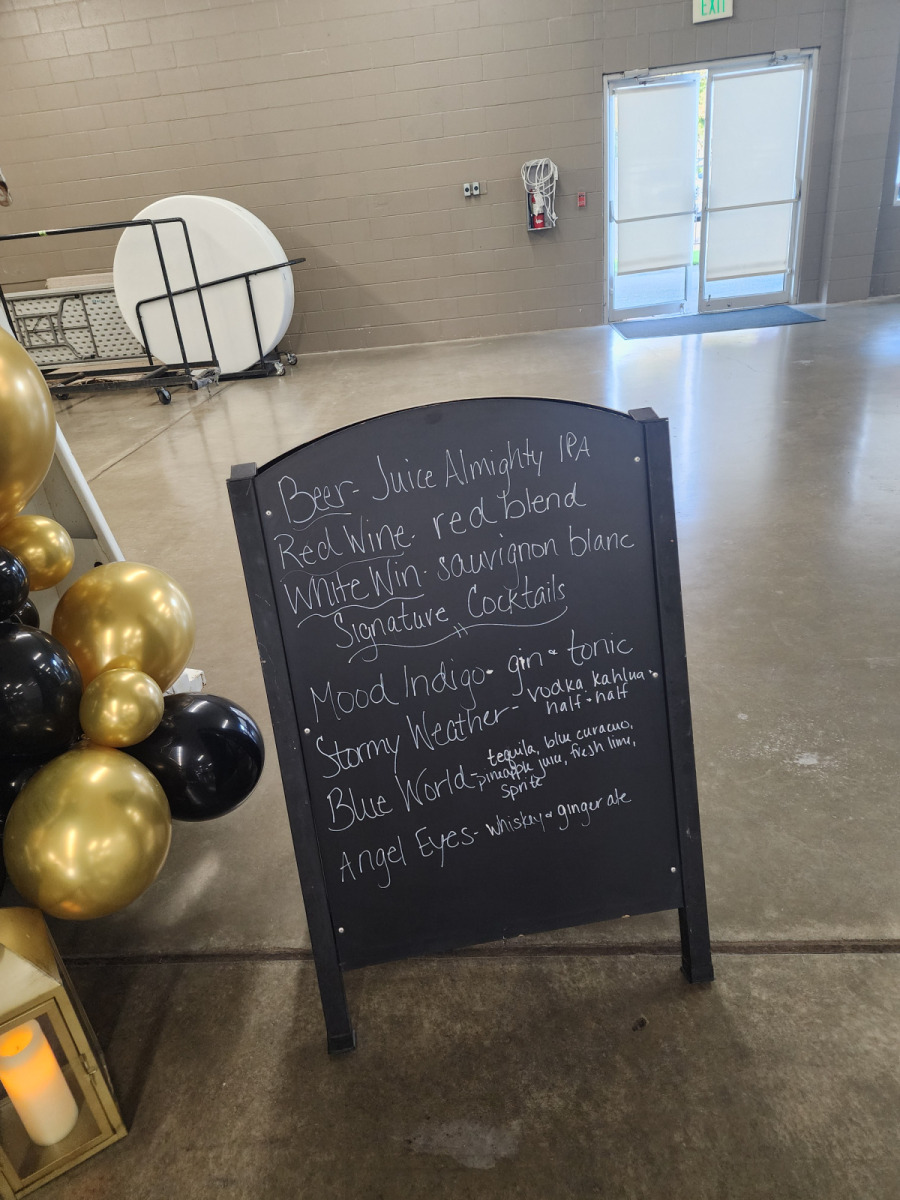 EXIT
Beer- Juice Almighty IPA
Red Wine- red blend
White Win- sauvignon blanc
Signature Cocktails
Mood Indigo- gin & tonic
Stormy Weather- vodka, kahlua &
half & half
Blue World- tequila, blue curacuo,
pineapple juice, fresh lime,
sprite
Angel Eyes- whiskey & ginger ale